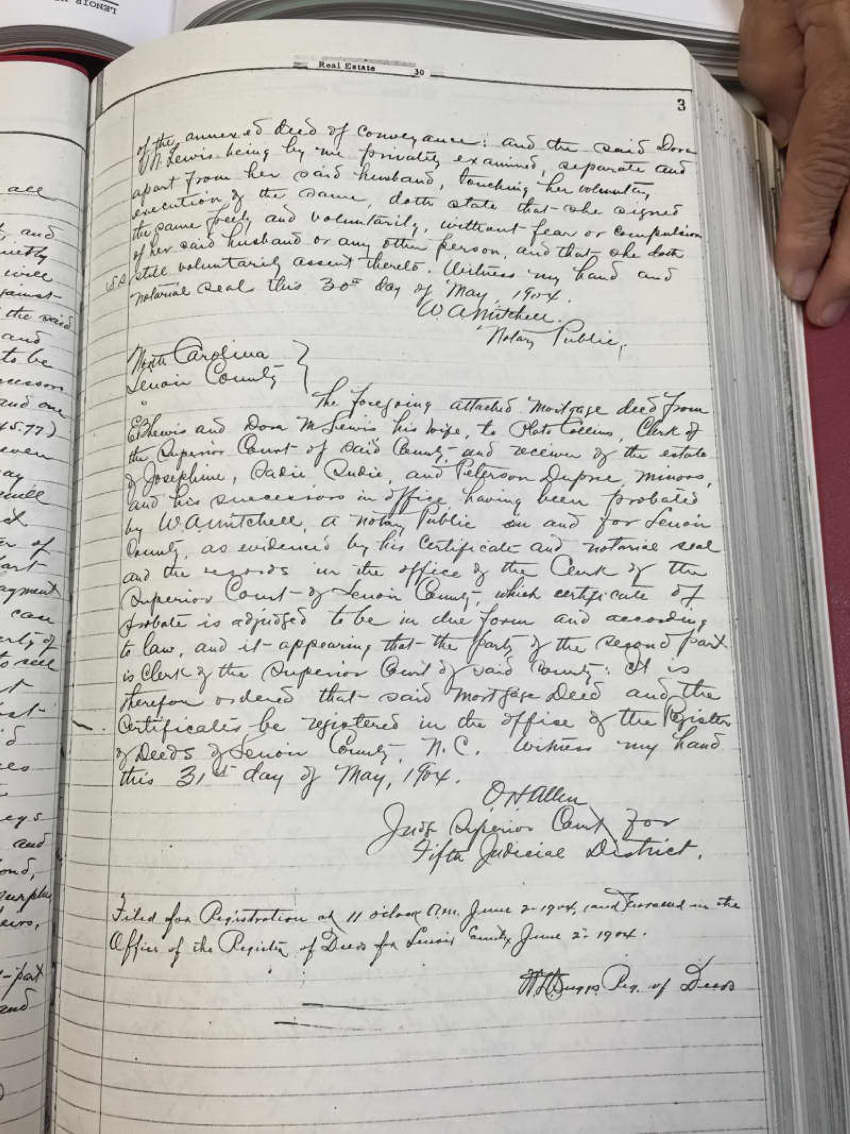 LENOIR
Real Estate 30
3
of the annexed deed of conveyance: and the said Dora
M Lewis being by me privately examined, separate and
apart from her said husband, touching her voluntary
execution of the same, doth state that she signed
the same freely and voluntarily, without fear or compulsion
of her said husband or any other person, and that she doth
still voluntarily assent thereto. Witness my hand and
notarial seal this 30th day of May, 1904.
W.A. Mitchell.
Notary Public,
North Carolina
Lenoir County
The foregoing attached mortgage deed from
Lewis and Dora M Lewis his wife, to Plato Collins, Clerk of
the Superior Court of said County, and receiver of the estate
of Josephine, Sadie, and Peterson minors,
and his successors in office having been probated
by W.A. Mitchell, a notary Public in and for Lenoir
County, as evidenced by his certificate and notarial seal
and the records in the office of the Clerk of the
Superior Court of Lenoir County, which certificate of
probate is adjudged to be in due form and according
to law, and it appearing that the party of the second part
is Clerk of the Superior Court of said County: It is
therefore ordered that said Mortgage Deed and the
Certificates be registered in the office of the Register
of Deeds of Lenoir County, N.C. Witness my hand
this 31st day of May, 1904.
O H Allen
Judge Superior Court for
Fifth Judicial District.
Filed for Registration at 11 oclock A.M. June 2 1904, and in the
Office of the Register of Deeds for Lenoir County June 2 1904.
Reg. of Deeds
all
and
will
against
the said
and
to be
and one
45.77)
even
of
part
payment
case
to sell
and
and